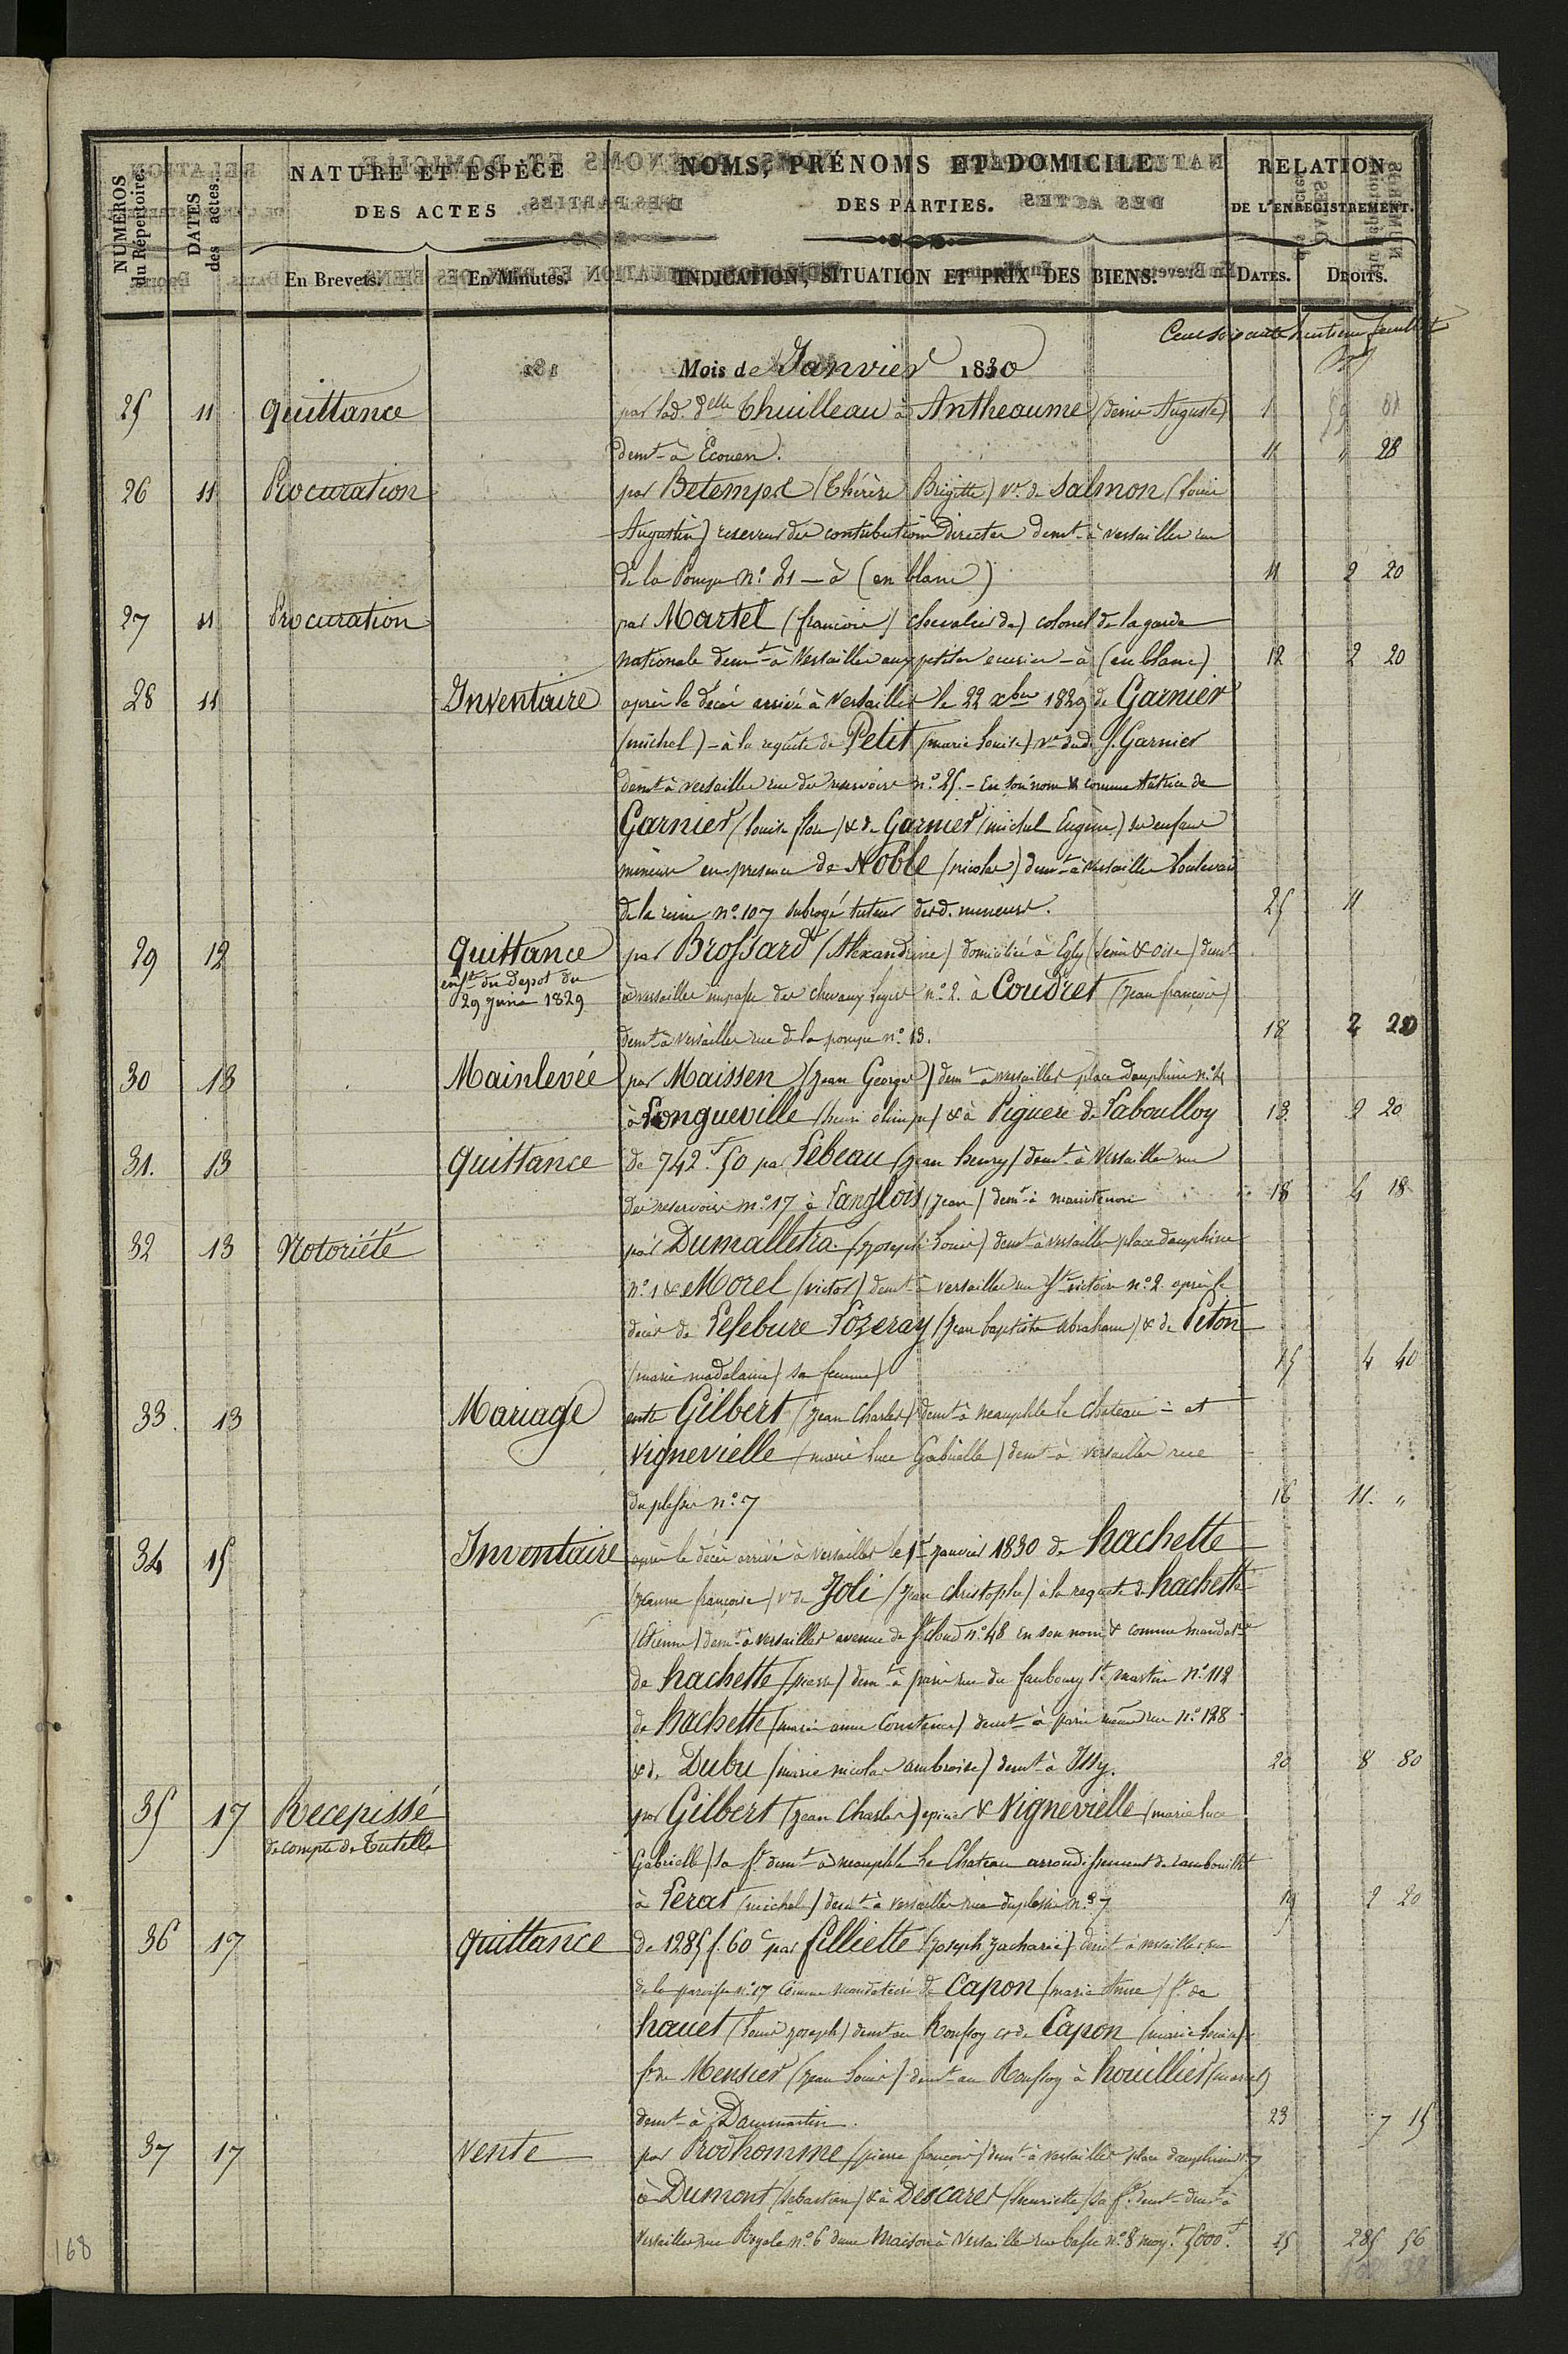 NUMÉROS du Répertoire.
DATES des actes.
NATURE ET ESPÈCE
DES ACTES
En Brevets.
En Minutes.
NOMS, PRÉNOMS ET DOMICILE
DES PARTIES.
INDICATION, SITUATION ET PRIX DES BIENS.
RELATION
DE L'ENREGISTREMENT.
DATES.
DROITS.
Cent soixante huitieme feuillet
Mois de Janvier 1830
25 11 quittance par lad. delle Thuilleau à Antheaume (denis Auguste)
demt à Ecouen. 11 " 28
26 11 Procuration par Betempse (Thérèse Brigitte) ve de Salmon (Louis
Augustin) receveur des contributions Directes demt à versailles rue
de la Pompe No. 21 - à (en blanc) 11 2 20
27 11 Procuration par Martel (francois chevalier de) colonel de la garde
nationale demt à Versailles aux petites ecuries - à (en blanc) 12 2 20
28 11 Inventaire après le décès arrivé à Versailles le 22 xbre 1829 de Garnier
(michel) - à la requête de Petit (marie Louise) ve dud. S. Garnier
demt à versailles rue des reservoirs no. 25. - En son nom & comme tutrice de
Garnier (Louise flore) & de Garnier (michel Eugène) ses enfans
mineurs en presence de Noble (nicolas) demt à Versailles boulevard
de la reine no. 107 subrogé tuteur desd. mineurs. 25 11
29 12 quittance par Brossard (Alexandrine) domiciliée à Egly (Seine & Oise) demt
enste du Depot du
29 juin 1829
à versailles impasse des chevaux legers no. 2. à Coudret (Jean françois)
demt à Versailles rue de la pompe no. 13. 18 2 20
30 13 Mainlevée par Maissen (Jean George) demt à versailles place Dauphine no. 4
à Longueville (henri olimpe) & à Piguere de Laboulloy 13 2 20
31. 13 quittance de 742f 50 par Lebeau (Jean henry) demt à Versailles rue
des reservoirs no. 17 à Langlois (Jean) demt à maintenon 18 4 18
32 13 Notoriété par Dumalletra (Joseph Louis) demt à versailles place dauphine
no. 1 & Morel (victor) demt à versailles rue Ste victoire no. 2. après le
décès de Lefebure Lozeray (Jean baptiste Abraham) & de Peton
(marie madelaine) sa femme 15 4 40
33. 13 Mariage entre Gilbert (Jean Charles) demt à neauphle le chateau - et
Vignevielle (marie Luce Gabrielle) demt à versailles rue
duplessis no. 7 16 11. "
34 15 Inventaire après le décès arrivé à Versailles le 1er janvier 1830 de hachette
(Jeanne françoise) ve de Joli (Jean christophe) à la requete de hachette
(Etienne) demt à Versailles avenue de St cloud no. 48 En son nom & comme mandatre
de hachette (pierre) demt à paris rue du faubourg St martin No. 112
de hachette (marie anne Constance) demt à paris même rue No. 128
& de Dubu (marie nicolas ambroise) demt à Issy. 20 8 80
35 17 Recepissé par Gilbert (Jean Charles) epicier & Vignevielle (marie Luce
de compte de Tutelle
Gabrielle) sa fe demt à neauphle Le Chateau arrondissement de rambouillet
à Lerat (michel) demt à versailles rue duplessis no. 7 19 2 20
36 17 quittance de 1285f. 60c par filliette (Joseph Zacharie) demt à versailles rue
de la paroisse no. 17 Comme mandataire de Capon (marie Anne) fe de
hauet (Louis Joseph) demt au Ronssoy et de Capon (marie Louise)
fe de Mensier (Jean Louis) demt au Ronssoy à houillier (marcel)
demt à Dammartin. 23 7 15
37 17 Vente par Prodhomme (pierre françois) demt à versailles place dauphine no. 7
à Dumont (Sebastien) & à Descares (henriette) sa fe demt
Versailles rue Royale no. 6 d'une Maison à Versailles rue basse no. 8 moyt 5000f 25 285 56
168